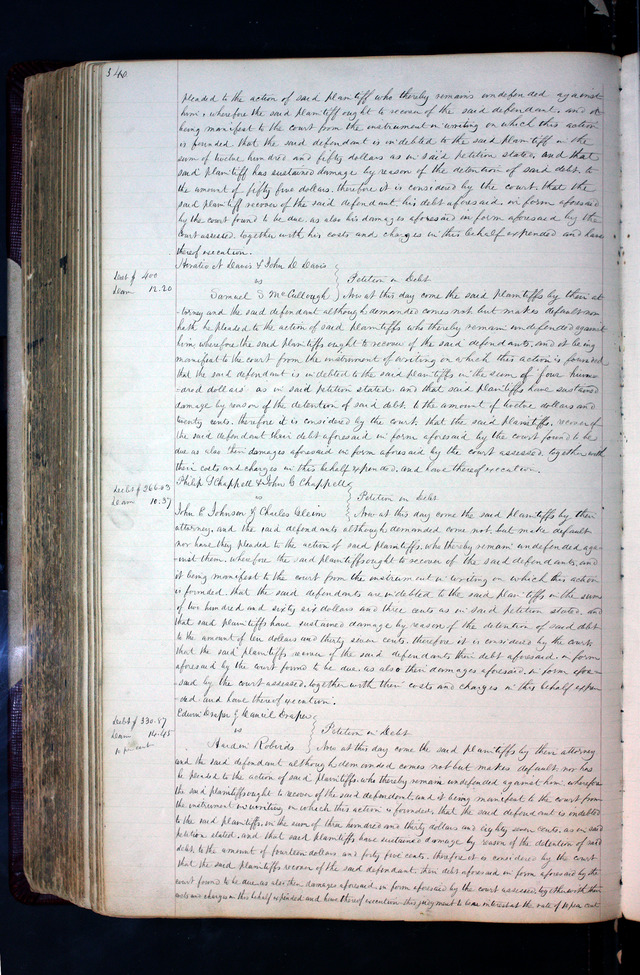 340
pleaded to the action of said plaintiff who thereby remains undefended against
him, wherefore the said plaintiff ought to recover of the said defendant, and it
being manifest to the court from the instrument in writing on which this action
is founded that the said defendant is indebted to the said plaintiff in the
sum of twelve hundred and fifty dollars as in said petition stated, and that
said plaintiff has sustained damage by reason of the detention of said debt, to
the amount of fifty five dollars. therefore it is considered by the court, that the
said plaintiff recover of the said defendant, his debt aforesaid, in form aforesaid
by the court found to be due, as also his damages aforesaid in form aforesaid by the
court assessed, together with his costs and charges in this behalf expended and have
thereof execution.
Horatio N Davis & John D Davis
Debt $ 400
vs Petition in Debt
Dam 12.20
Samuel S McCullough Now at this day come the said plaintiffs by their at-
-torney and the said defendant although demanded comes not but makes default nor
hath he pleaded to the action of said plaintiffs who thereby remain undefended against
him, wherefore the said plaintiffs ought to recover of the said defendants, and it being
manifest to the court from the instrument of writing on which this action is founded
that the said defendant is indebted to the said plaintiffs in the sum of four hun-
-dred dollars as in said petition stated and that said plaintiffs have sustained
damage by reason of the detention of said debt, to the amount of twelve dollars and
twenty cents. therefore it is considered by the court, that the said plaintiffs, recover of
the said defendant their debt aforesaid in form aforesaid by the court found to be
due as also their damages aforesaid in form aforesaid by the court assessed, together with
their costs and charges in this behalf expended, and have thereof execution.
Philip T Chappell & John G Chappell
Debt $ 266.03
vs Petition in Debt
Dam 10.37
John E Johnson & Charles Cleim Now at this day come the said plaintiffs by their
attorney, and the said defendants although demanded come not, but make default
nor have they pleaded to the action of said plaintiffs, who thereby remain undefended aga-
-inst them, wherefore the said plaintiffs ought to recover of the said defendants, and
it being manifest to the court from the instrument in writing on which this action
is founded, that the said defendants are indebted to the said plaintiffs in the sum
of two hundred and sixty six dollars and three cents as in said petition stated, and
that said plaintiffs have sustained damage by reason of the detention of said debt
to the amount of ten dollars and thirty seven cents. therefore it is considered by the court
that the said plaintiffs recover of the said defendants their debt aforesaid, in form
aforesaid by the court found to be due, as also their damages aforesaid, in form afore-
said by the court assessed, together with their costs and charges in this behalf expen-
-ded and have thereof execution.
Edwin Draper & Daniel Draper
Debt $ 330.87
vs Petition in Debt
Dam 14.45
10 per cent
Harden Roberds Now at this day come the said plaintiffs by their attorney
and the said defendant although demanded comes not but makes default, nor has
he pleaded to the action of said plaintiffs, who thereby remain undefended against him, wherefore
the said plaintiffs ought to recover of the said defendant, and it being manifest to the court from
the instrument in writing on which this action is founded, that the said defendant is indebted
to the said plaintiffs, in the sum of three hundred and thirty dollars and eighty seven cents, as in said
petition stated, and that said plaintiffs have sustained damage by reason of the detention of said
debt, to the amount of fourteen dollars and forty five cents. therefore it is considered by the court
that the said plaintiffs recover of the said defendant, their debt aforesaid in form aforesaid by the
court found to be due, as also their damages aforesaid, in form aforesaid by the court assessed, together with their
costs and charges in this behalf expended and have thereof execution this judgment to bear interest at the rate of 10 per cent